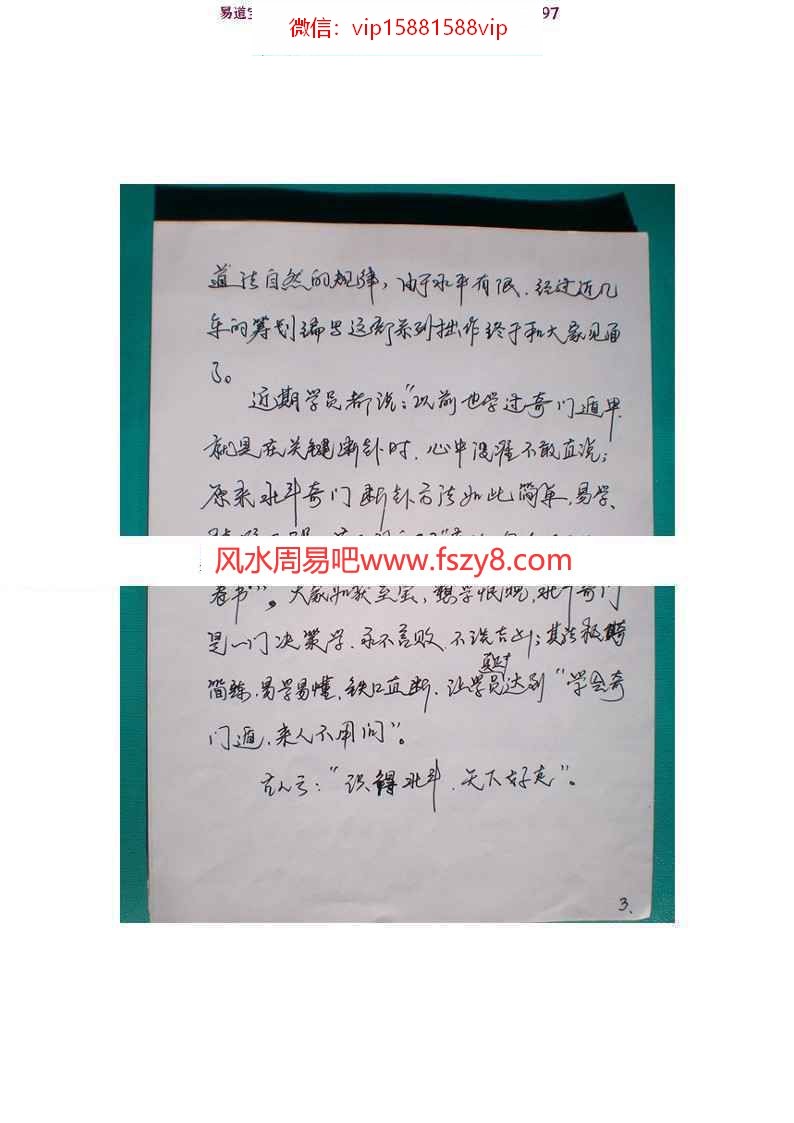 易道
微信：vip15881588vip
97
道法自然的规律，由于水平有限、经过近几
年的筹划编写这部系列拙作终于和大家见面
了。
近期学员都说：“以前也学过奇门遁甲、
就是在关键断卦时、心中没准不敢直说；
原来北斗奇门断卦方法如此简单、易学、
风水周易吧www.fszy8.com
看书”。大家如获至宝，想学恨晚，北斗奇门
是一门决策学、永不言败、不说吉凶；其法
简练、易学易懂、铁口直断、让学员真正达到“学会奇
门遁、来人不用问”。
古人云：“识得北斗、天下好走”。
3、